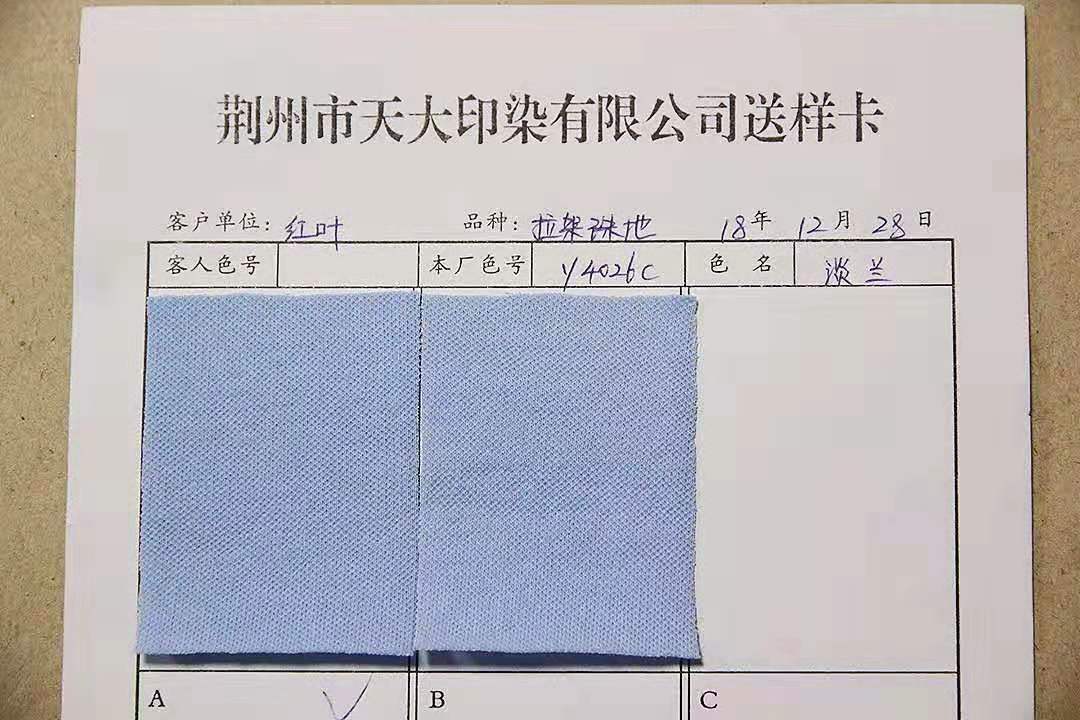 荆州市天大印染有限公司送样卡
客户单位：红叶 品种：拉架珠地 18年 12月 28日
客人色号 本厂色号 Y4026C 色 名 淡兰
A √ B C